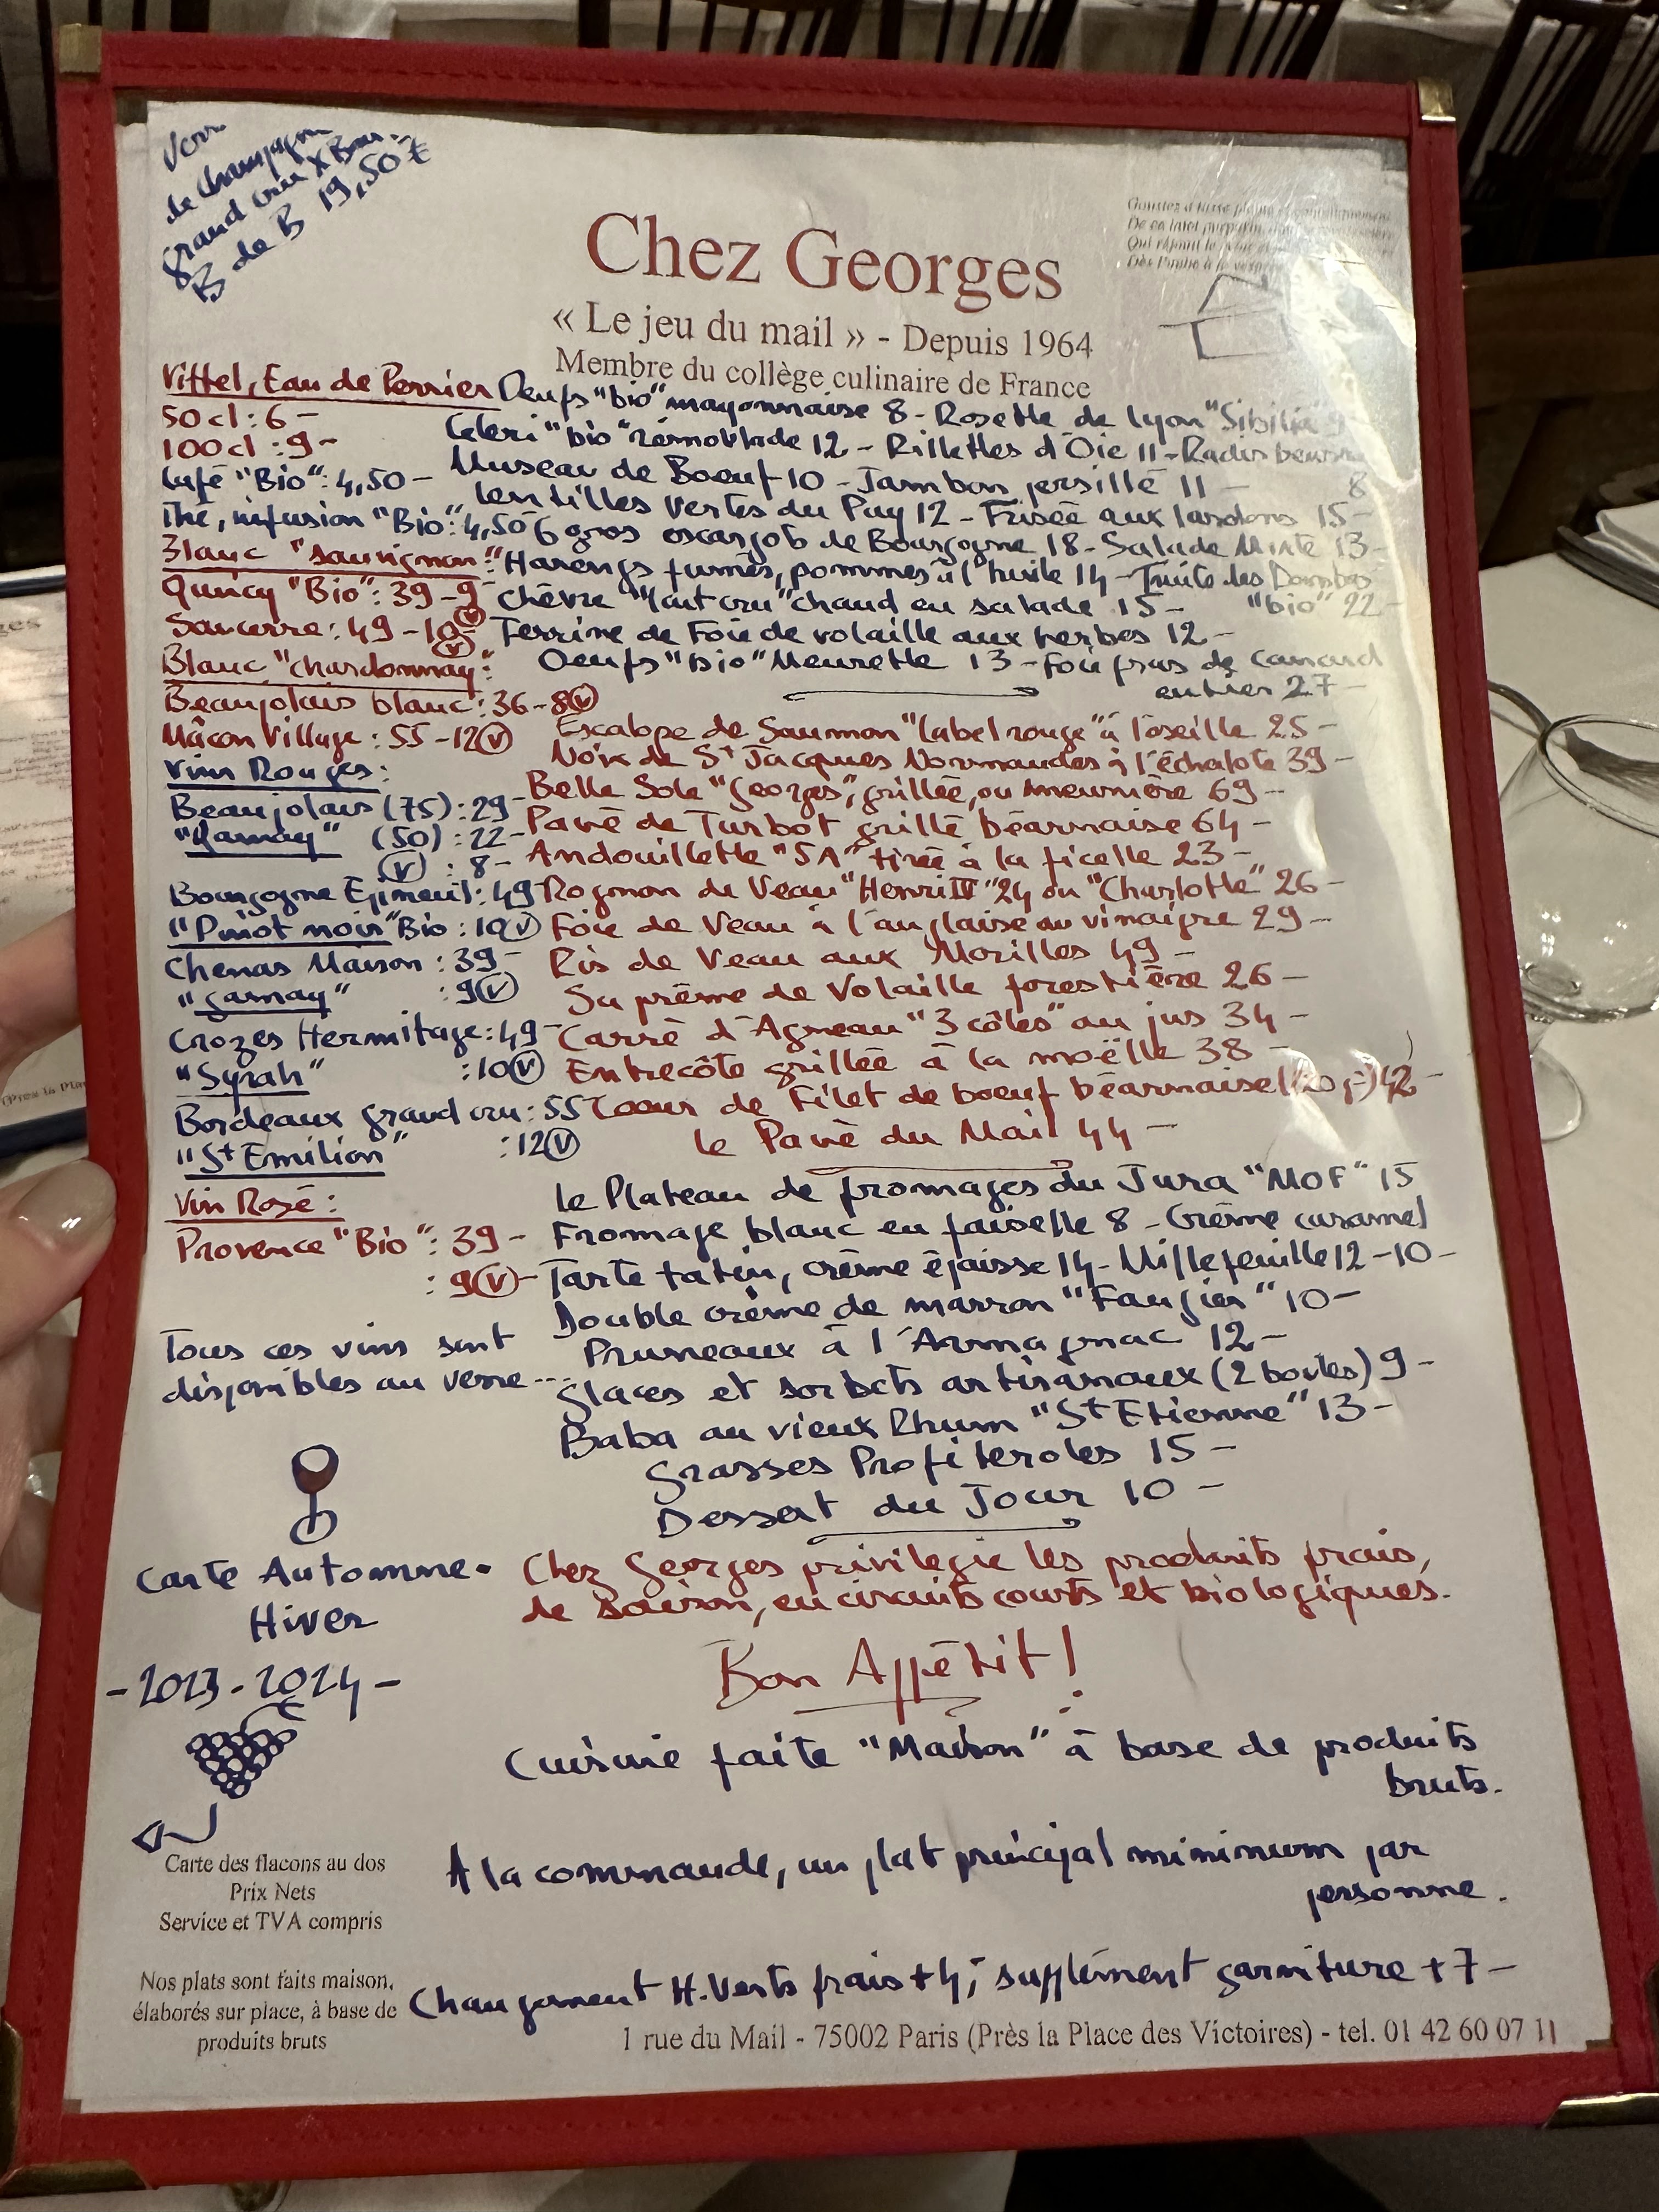 Verre
de Champagne
grand cru
B de B 19,50 €
Chez Georges
« Le jeu du mail » - Depuis 1964
Membre du collège culinaire de France
Vittel, Eau de Perrier
50 cl : 6 -
100 cl : 9 -
Café "Bio" : 4,50 -
Thé, infusion "Bio" : 4,50
Blanc "sauvignon" :
Quincy "Bio" : 39 - 9 - (V)
Sancerre : 49 - 10 - (V)
Blanc "Chardonnay" :
Beaujolais blanc : 36 - 8 (V)
Mâcon Village : 55 - 12 (V)
Vins Rouges :
Beaujolais (75) : 29 -
"Gamay" (50) : 22 -
(V) : 8 -
Bourgogne Epineuil : 49
"Pinot noir" Bio : 10 (V)
Chenas Maison : 39 -
"Gamay" : 9 (V)
Crozes Hermitage : 49 -
"Syrah" : 10 (V)
Bordeaux grand cru : 55
"St Emilion" : 12 (V)
Vin Rosé :
Provence "Bio" : 39 -
: 9 (V) -
Tous ces vins sont
disponibles au verre ...
Carte Automne .
Hiver
- 2023 - 2024 -
Carte des flacons au dos
Prix Nets
Service et TVA compris
Nos plats sont faits maison,
élaborés sur place, à base de
produits bruts
Oeufs "bio" mayonnaise 8 - Rosette de Lyon "Sibilia" 9
Céleri "bio" rémoulade 12 - Rillettes d'Oie 11 - Radis beurre
Museau de Boeuf 10 - Jambon persillé 11 - 8
Lentilles vertes du Puy 12 - Frisée aux lardons 15 -
6 gros escargots de Bourgogne 18 - Salade Mixte 13 -
Harengs fumés, pommes à l'huile 14 - Truite des Dombes
Chèvre "lait cru" chaud en salade 15 - "bio" 22 -
Terrine de Foie de volaille aux herbes 12 -
Oeufs "bio" Meurette 13 - Foie gras de canard
entier 27 -
Escalope de Saumon "label rouge" à l'oseille 25 -
Noix de St Jacques Normandes à l'échalote 39 -
Belle Sole "Georges", grillée, ou meunière 69 -
Pavé de Turbot grillé béarnaise 64 -
Andouillette "5A" tirée à la ficelle 23 -
Rognon de Veau "Henri IV" 24 ou "Charlotte" 26 -
Foie de Veau à l'anglaise ou vinaigre 29 -
Ris de Veau aux Morilles 49 -
Suprême de Volaille forestière 26 -
Carré d'Agneau "3 côtes" au jus 34 -
Entrecôte grillée à la moëlle 38 -
Coeur de Filet de boeuf béarnaise 42 -
le Pavé du Mail 44 -
le Plateau de fromages du Jura "MOF" 15
Fromage blanc en faiselle 8 - Crème caramel
Tarte tatin, crème épaisse 14 - Millefeuille 12 - 10 -
Double crème de marron "Faugier" 10 -
Pruneaux à l'Armagnac 12 -
Glaces et sorbets artisanaux (2 boules) 9 -
Baba au vieux Rhum "St Etienne" 13 -
Grasses Profiteroles 15 -
Dessert du Jour 10 -
Chez Georges privilegie les produits frais,
de saison, en circuits courts et biologiques.
Bon Appétit !
Cuisine faite "Maison" à base de produits
bruts.
A la commande, un plat principal minimum par
personne.
Changement H.Verts frais + 4 ; supplément garniture + 7 -
1 rue du Mail - 75002 Paris (Près la Place des Victoires) - tel. 01 42 60 07 11